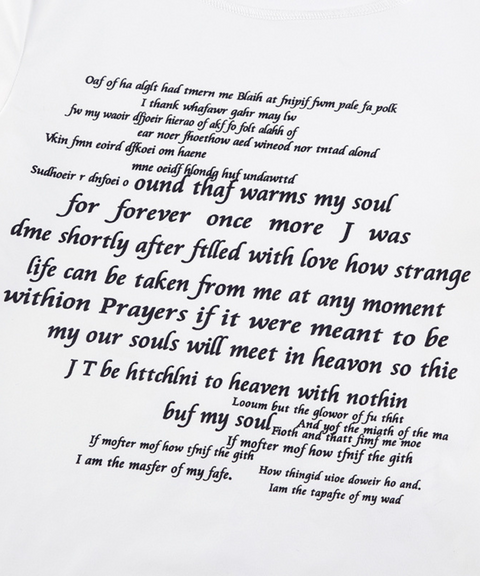 Oaf of ha alglt had tmern me Blaih at fnipif fwm pale fa polk
I thank whafawr gahr may lw
fw my waoir dfjoeir hierao of akf fo folt alahh of
ear noer fhoethow aed wineod nor tntad alond
Vkin fmn eoird dfkoei om haene
mne oeidf hlondg huf undawttd
Sudhoeir r dnfoei o ound thaf warms my soul
for forever once more J was
dme shortly after ftlled with love how strange
life can be taken from me at any moment
withion Prayers if it were meant to be
my our souls will meet in heavon so thie
J T be httchlni to heaven with nothin
Looum but the glowor of fu thht
buf my soul And yof the migth of the ma
Fioth and thatt fimf me moe
If mofter mof how tfnif the gith
If mofter mof how tfnif the gith
I am the masfer of my fafe.
How thingid uioe doweir ho and.
Iam the tapafte of my wad